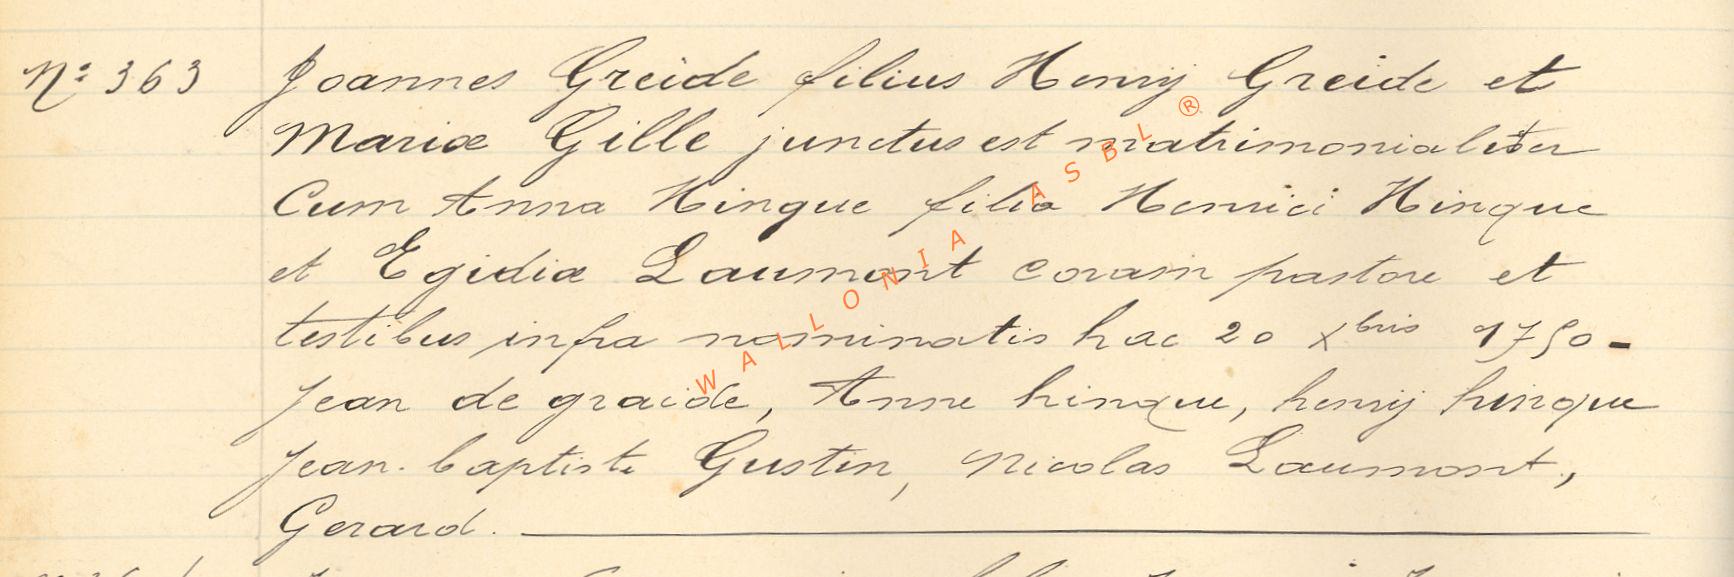 N° 363 Joannes Greide filius Henrij Greide et
Mariæ Gille junctus est matrimonialiter
Cum Anna Hinque filia Henrici Hinque
et Egidiæ Laumont coram pastore et
testibus infra nominatis hac 20 Xbris 1750-
Jean de graide, Anne hinque, henrij hinque
Jean-baptiste Gustin, Nicolas Laumont,
Gerard.
WALLONIA ASBL ®